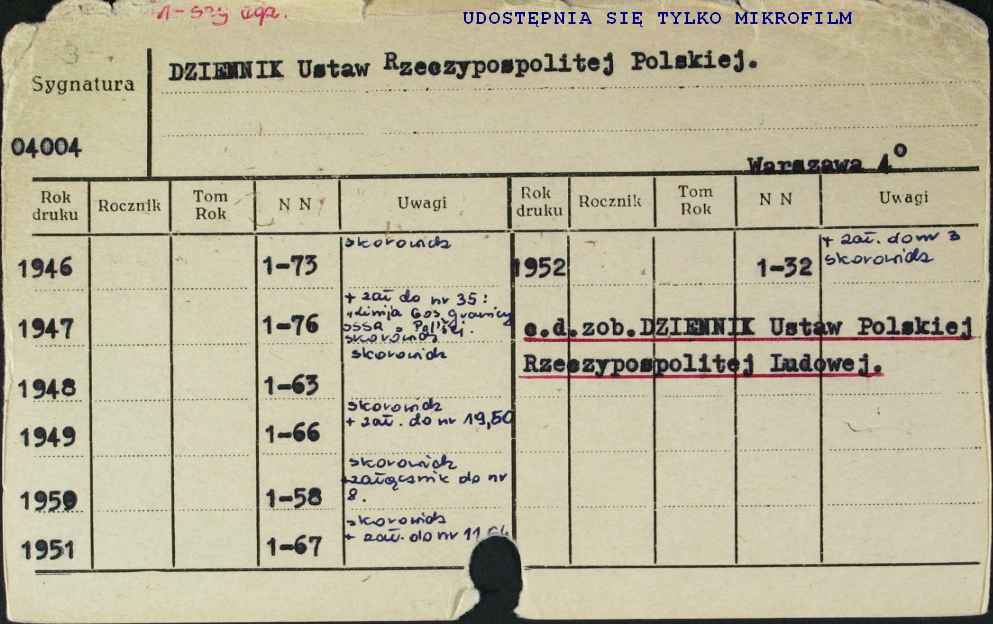 1-szy egz.
UDOSTĘPNIA SIĘ TYLKO MIKROFILM
Sygnatura
DZIENNIK Ustaw Rzeczypospolitej Polskiej.
04004
Warszawa 4°
Rok druku Rocznik Tom Rok N N Uwagi Rok druku Rocznik Tom Rok N N Uwagi
1946 1-73 skorowidz
1947 1-76 + zał do nr 35:
granicy
ZSSR i Polski.
skorowidz
1948 1-63 skorowidz
1949 1-66 skorowidz
+ zał. do nr 19,50
1950 1-58 skorowidz
+załącznik do nr
8.
1951 1-67 skorowidz
+ zał. do nr 11
1952 1-32 + zał. do nr 3
skorowidz
c.d.zob.DZIENNIK Ustaw Polskiej
Rzeczypospolitej Ludowej.